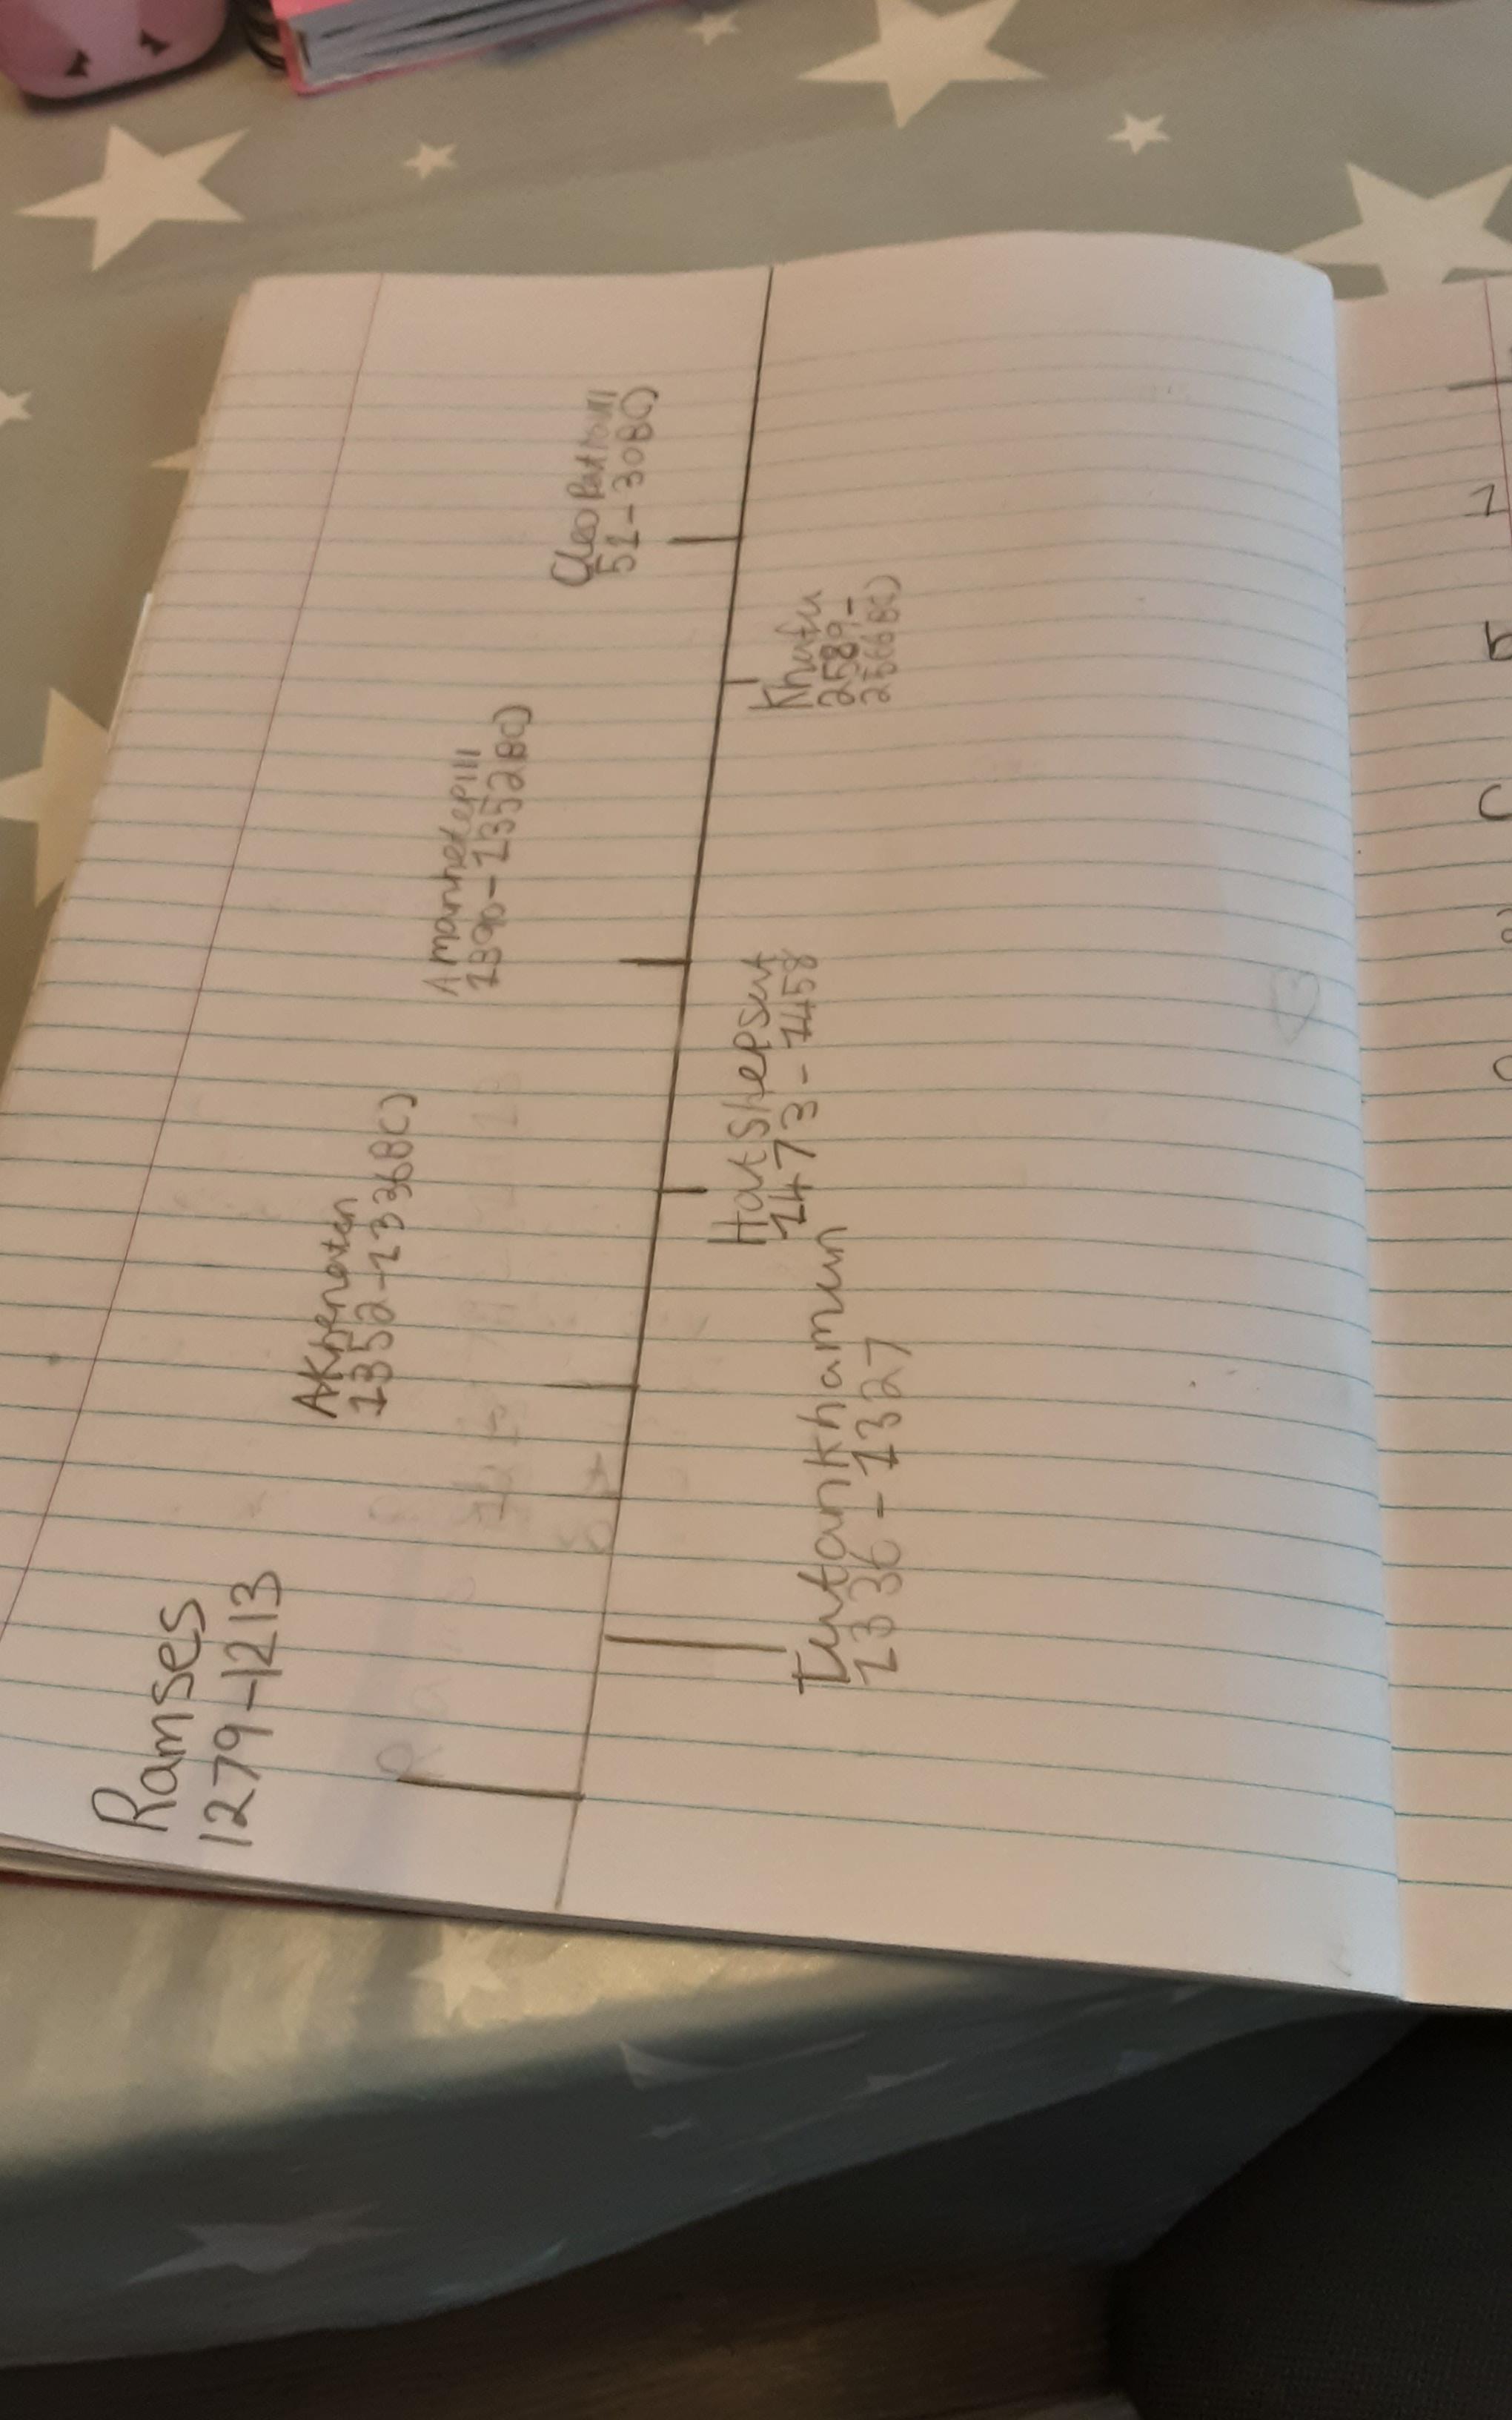 Ramses
1279-1213
Tutankhamun
1336-1327
Akhenaten
1352-1336BC)
Hatshepsut
1473-1458
Amanhetep III
1390-1352BC)
Khufu
2589-
2566BC)
51-30BC)